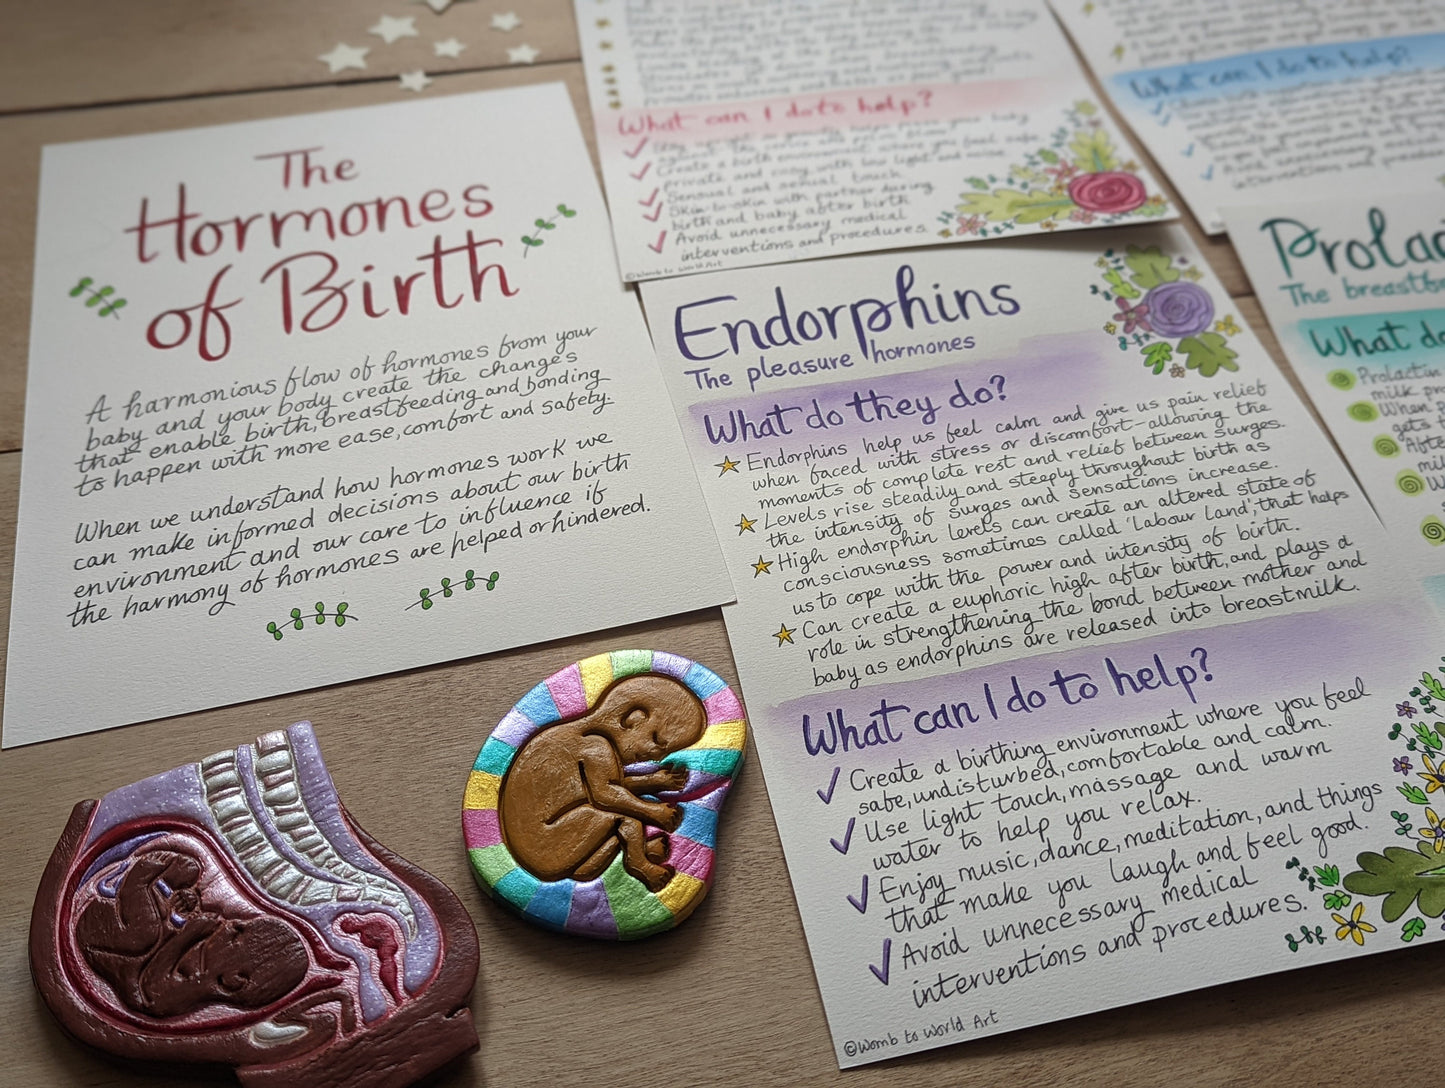 The
Hormones
of Birth
A harmonious flow of hormones from your
baby and your body create the changes
that enable birth, breastfeeding and bonding
to happen with more ease, comfort and safety.
When we understand how hormones work we
can make informed decisions about our birth
environment and our care to influence if
the harmony of hormones are helped or hindered.
What can I do to help?
Create a birth environment where you feel safe
private and cosy with low light and noise
Sensual and sexual touch
Skin-to-skin with partner during
birth and baby after birth
Avoid unnecessary medical
interventions and procedures.
©Womb to World Art
What can I do to help?
Endorphins
The pleasure hormones
What do they do?
Endorphins help us feel calm and give us pain relief
when faced with stress or discomfort-allowing the
moments of complete rest and relief between surges.
Levels rise steadily and steeply throughout birth as
the intensity of surges and sensations increase.
High endorphin levels can create an altered state of
consciousness sometimes called 'labour land', that helps
us to cope with the power and intensity of birth.
Can create a euphoric high after birth, and plays a
role in strengthening the bond between mother and
baby as endorphins are released into breastmilk.
What can I do to help?
Create a birthing environment where you feel
safe, undisturbed, comfortable and calm.
Use light touch, massage and warm
water to help you relax.
Enjoy music, dance, meditation, and things
that make you laugh and feel good.
Avoid unnecessary medical
interventions and procedures.
©Womb to World Art
Prolac
The breastfe
What do
Prolactin
milk pr
When
gets
Afte
mil
W